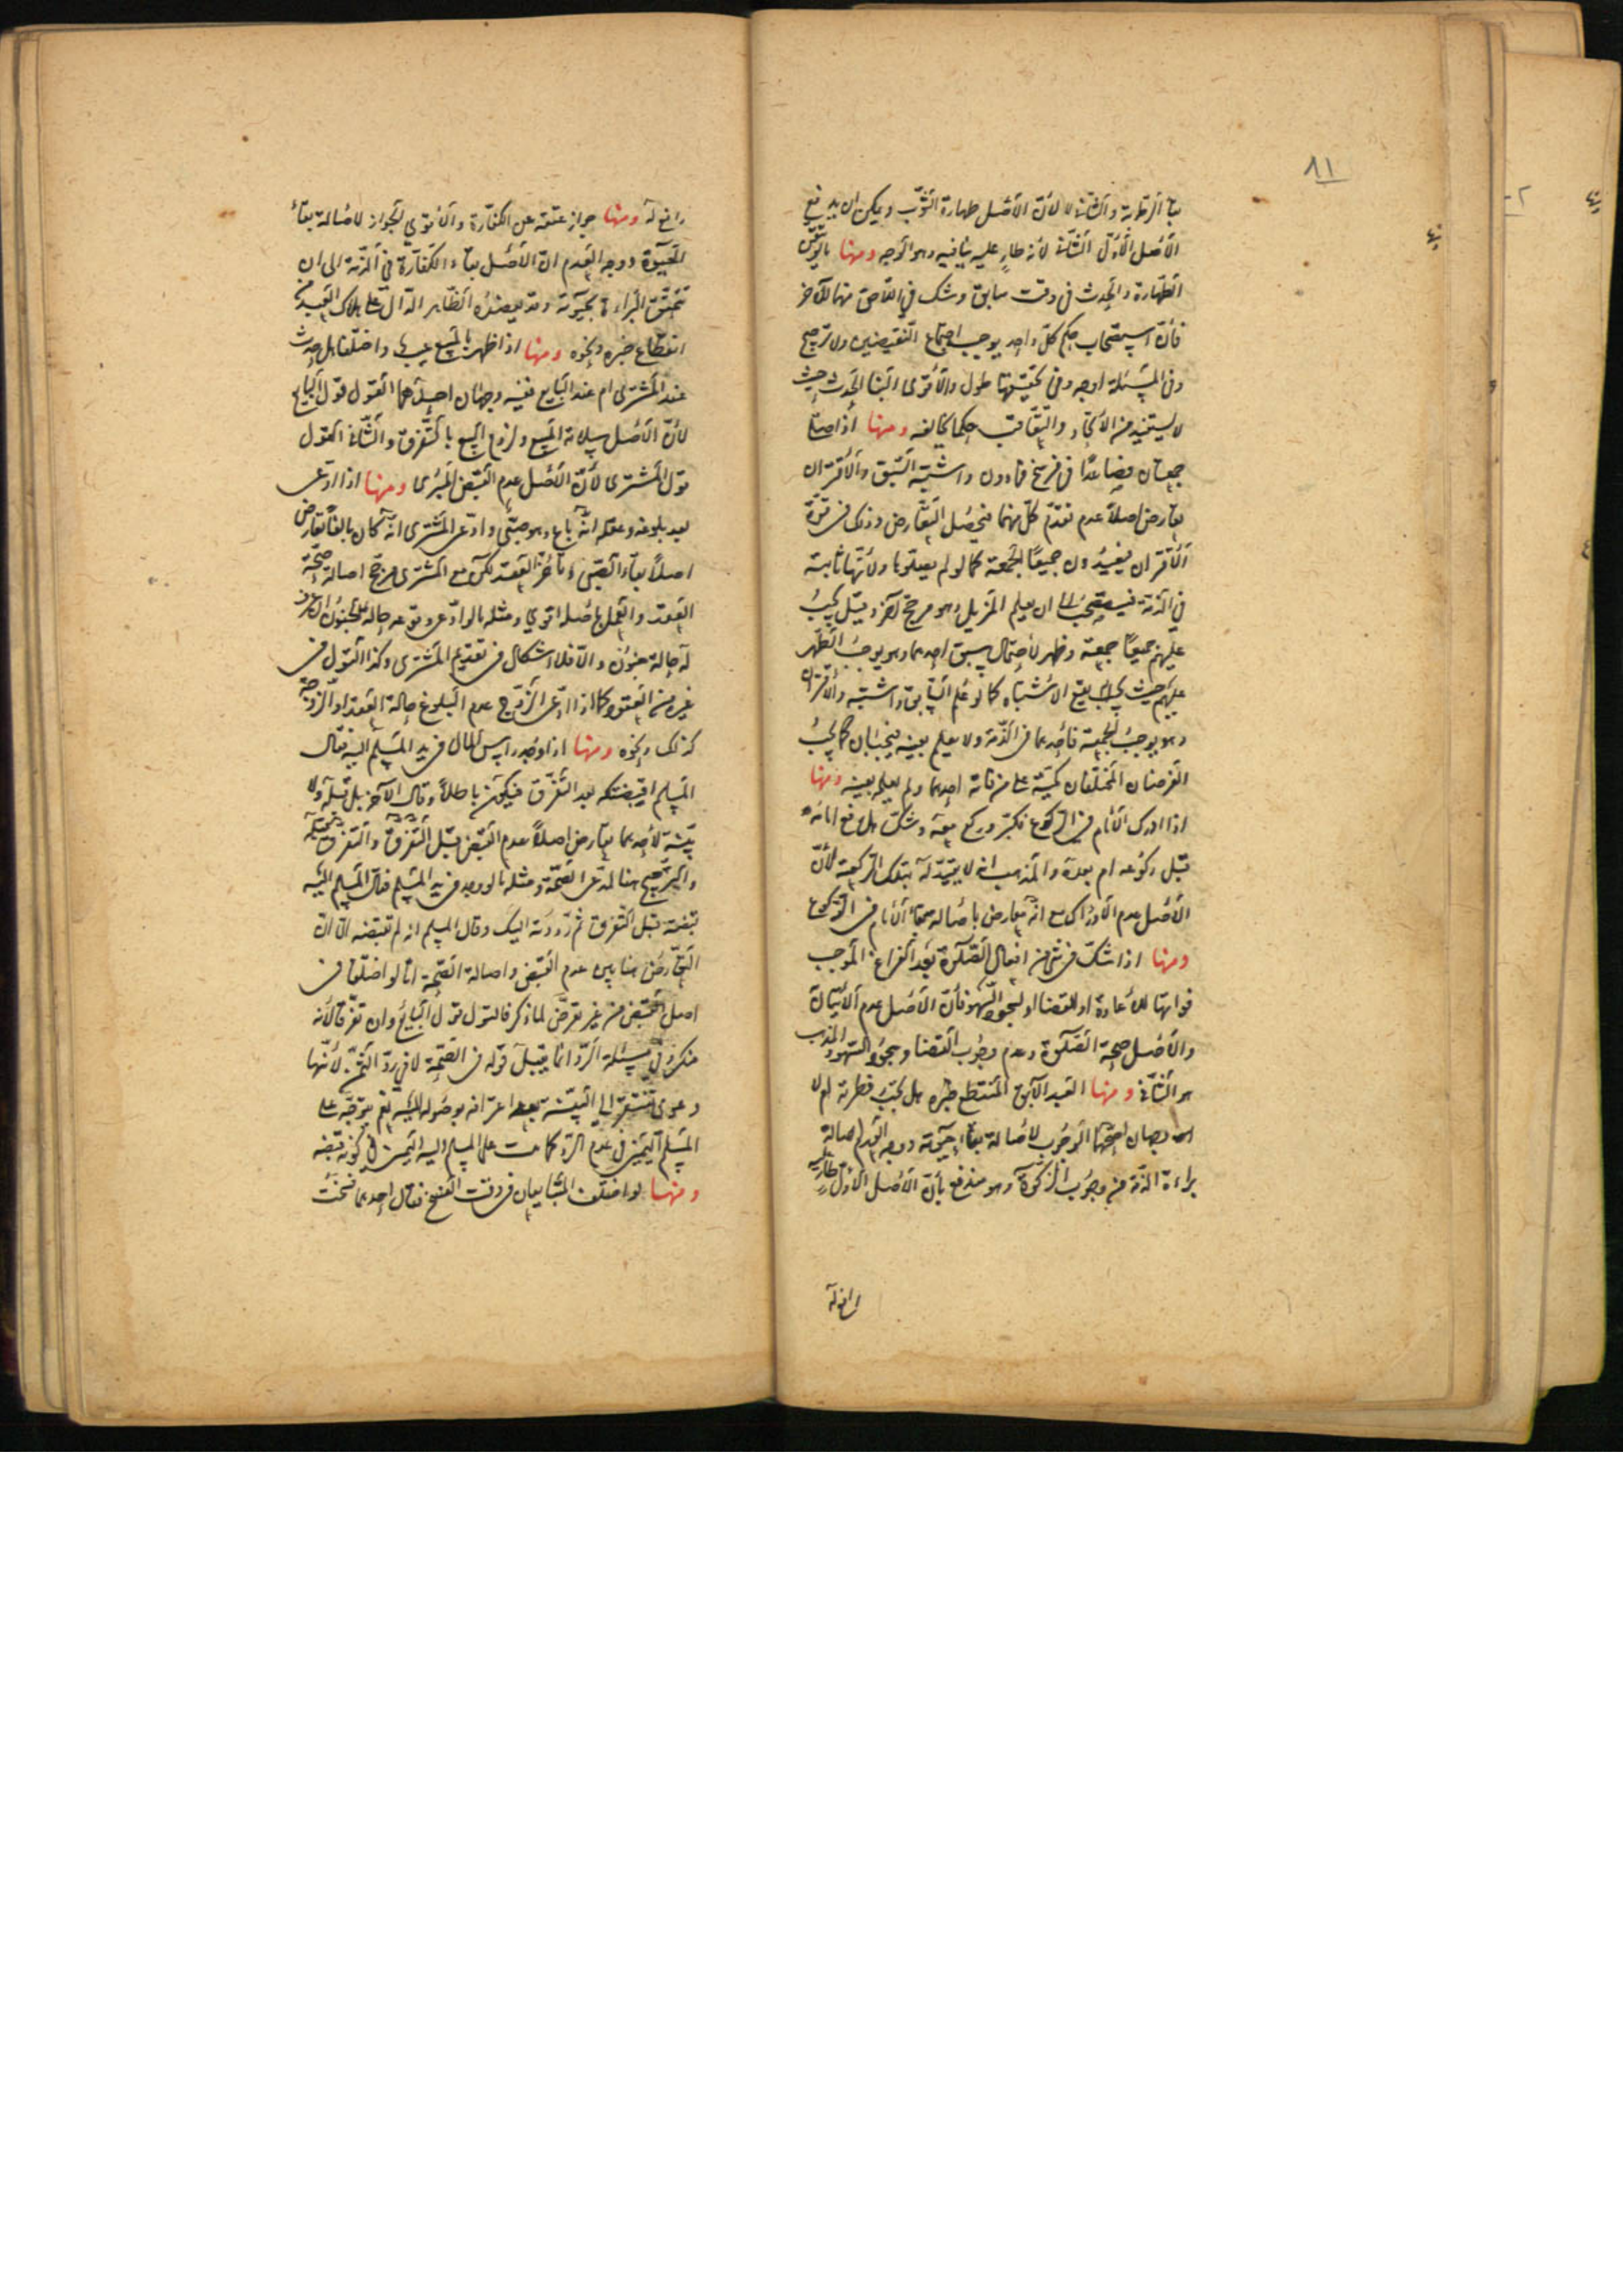 ٨١
بقاء الرطوبة والثاني لا لأن الأصل طهارة الثوب ويمكن ان يدفع
الأصل الأول الثاني لأنه طار عليه ينافيه وهو الوجه ومنها تيقن
الطهارة والحدث في وقت سابق وشك في اللاحق منهما للآخر
فان استصحاب حكم كل واحد يوجب اجتماع النقيضين ولا ترجيح
وفي المسئلة اوجه وفي تحقيقها طول والأقوى البنا الحدث حيث
لا يستفيد من الاتحاد والتعاقب حكما يخالفه ومنها اذا صلى
جمعتان فصاعدا في فرسخ فما دون واشتبه السبق والاقتران
تعارض اصلا عدم تقدم كل منهما فيحصل التعارض وذلك في قوة
الاقتران فيعيدون جميعا الجمعة كما لو لم يصلوها ولأنها ثابتة
في الذمة فيستصحب الى ان يعلم المزيل وهو مرجح آخر وقيل يجب
عليهم جميعا جمعة وظهر لاحتمال سبق احدهما وهو يوجب الظهر
عليهم حيث يقع الاشتباه كما لو علم السابق واشتبه والاقتران
وهو يوجب الجمعة فأحدهما في الذمة ولا يعلم بعينه فيجبان كما يجب
الفرضان المختلفان كمية على من فاته احدهما ولم يعلمه بعينه ومنها
اذا ادرك الامام في الركوع فكبر وركع معه وشك هل رفع امامه
قبل ركوعه ام بعده والمذهب انه لا يعتد له بتلك الركعة لأن
الأصل عدم الادراك مع انه معارض باصالة بقاء الامام في الركوع
ومنها اذا شك في شيء من افعال الصلوة بعد الفراغ الموجب
فواتها للاعادة او للقضا او لسجود السهو فان الأصل عدم الاتيان
والأصل صحة الصلوة وعدم وجوب القضا وسجود السهو والمذهب
هو الثاني ومنها العبد الآبق المنقطع خبره هل تجب فطرته ام لا
وجهان اصحهما الوجوب لاصالة بقاء حيوته ووجه العدم اصالة
براءة الذمة من وجوب الزكوة وهو مندفع بأن الأصل الأول طار عليه
رافع له
رافع له ومنها جواز عتقه عن الكفارة والأقوى الجواز لاصالة بقاء
الحيوة ووجه العدم ان الأصل بقاء الكفارة في الذمة الى ان
تتحقق البراءة بحيوته وقد يعضده الظاهر الدال على هلاك العبد من
انقطاع خبره ونحوه ومنها اذا ظهر بالمبيع عيب واختلفا هل حدث
عند المشترى ام عند البايع ففيه وجهان احدهما القول قول البايع
لأن الأصل سلامة المبيع ولزوم البيع بالتفرق والثاني القول
قول المشترى لأن الأصل عدم القبض المبرى ومنها اذا ادعى
بعد بلوغه وعقله انه باع وهو صبي وادعى المشترى انه كان بالغا تعارض
اصلا بقاء الصبى وتأخر العقد لكن مع المشترى مرجح اصالة صحة
العقد والعمل باصله اقوى ومثله ما لو ادعى وقوعه حالة الجنون ان عرف
له حالة جنون والا فلا اشكال في تقديم المشترى وكذا القول في
غيره من العقود كما اذا ادعى الزوج عدم البلوغ حالة العقد او الزوجة
كذلك ونحوه ومنها اذا وجد راس المال في يد المسلم اليه فقال
المسلم اقبضتكه بعد التفرق فيكون باطلا وقال الآخر بل قبله ولا
بينة لأحدهما تعارض اصلا عدم القبض قبل التفرق والتفرق قبله
والترجيح هنا لمدعى الصحة ومثله ما لو وجد في يد المسلم فقال المسلم اليه
قبضته قبل التفرق ثم رددته اليك وقال المسلم انه لم تقبضه الا ان
التعارض هنا بين عدم القبض واصالة الصحة اما لو اختلفا في
اصل القبض من غير تعرض لما ذكر فالقول قول البايع وان تفرقا لأنه
منكر وفي مسئلة الرد انما يقبل قوله في الصحة لا في رد الثمن لأنها
دعوى تفتقر الى البينة بعد اعترافه بوصوله اليه نعم يتوجه على
المسلم اليمين في عدم الرد كما على المسلم اليه اليمين في كونه قبضه
ومنها لو اختلف المتبايعان في وقت الفسخ فقال احدهما فسخت